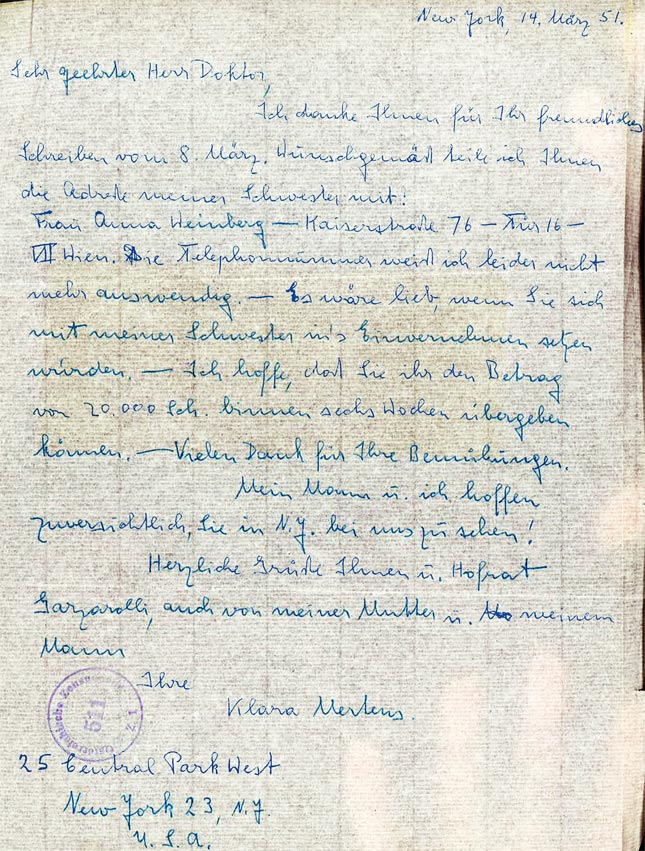 New York, 14. März 51.
Sehr geehrter Herr Doktor,
Ich danke Ihnen für Ihr freundliches
Schreiben vom 8. März. Wunschgemäß teile ich Ihnen
die Adreße meiner Schwester mit:
Frau Anna Weinberg — Kaiserstraße 76 — Tür 16 —
VII Wien. Die Telephonnummer weiß ich leider nicht
mehr auswendig. — Es wäre lieb, wenn Sie sich
mit meiner Schwester in's Einvernehmen setzen
würden. — Ich hoffe, daß Sie ihr den Betrag
von 20.000 Sch. binnen sechs Wochen übergeben
können. — Vielen Dank für Ihre Bemühungen.
Mein Mann u. ich hoffen
zuversichtlich, Sie in N.Y. bei uns zu sehen!
Herzliche Grüße Ihnen u. Hofrat
Garzarolli, auch von meiner Mutter u. meinem
Mann
Ihre
Klara Mertens.
Österreichische Zensur
511
25 Central Park West
New York 23, N.Y.
U.S.A.